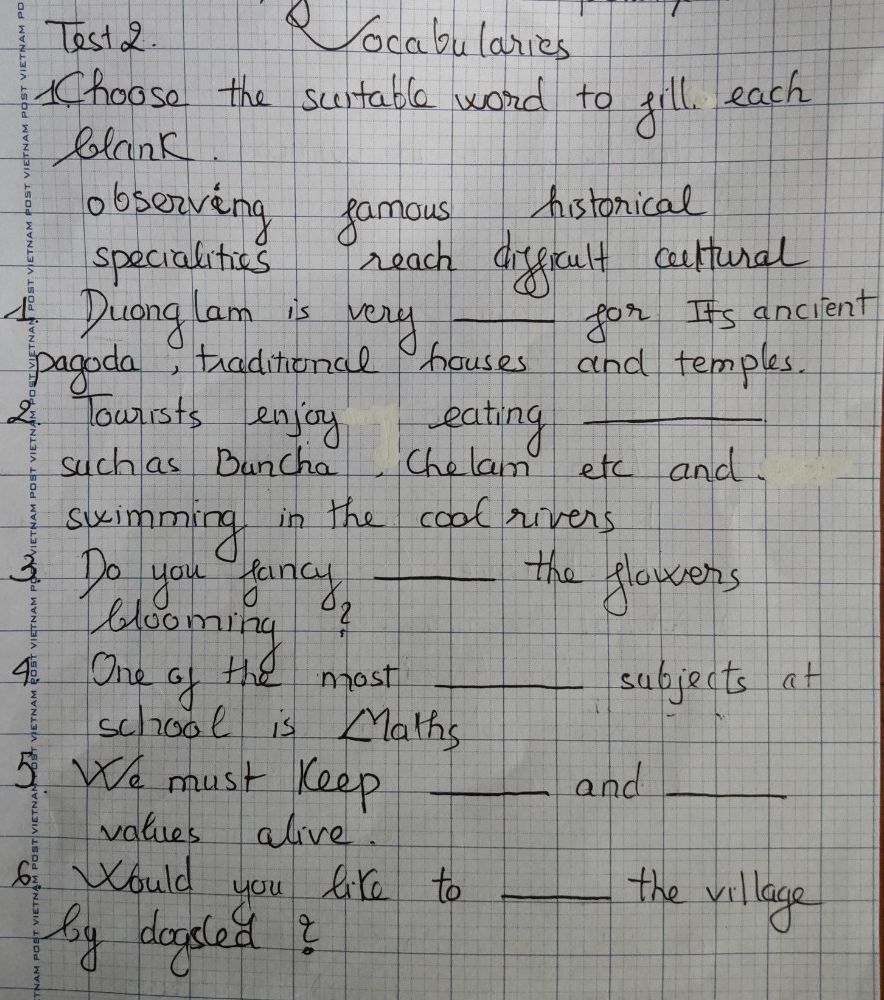 Test 2. Vocabularies
1 Choose the suitable word to fill each
blank.
observing famous historical
specialities reach difficult cultural
1. Duong lam is very ____ for Its ancient
pagoda, traditional houses and temples.
2. Tourists enjoy eating ____
such as Buncha, Chelam etc and
swimming in the cool rivers
3. Do you fancy ____ the flowers
blooming ?
4. One of the most ____ subjects at
school is Maths
5. We must Keep ____ and ____
values alive.
6. Would you like to ____ the village
by dogsled ?
VIETNAM POST VIETNAM POST VIETNAM POST VIETNAM POST VIETNAM POST VIETNAM POST